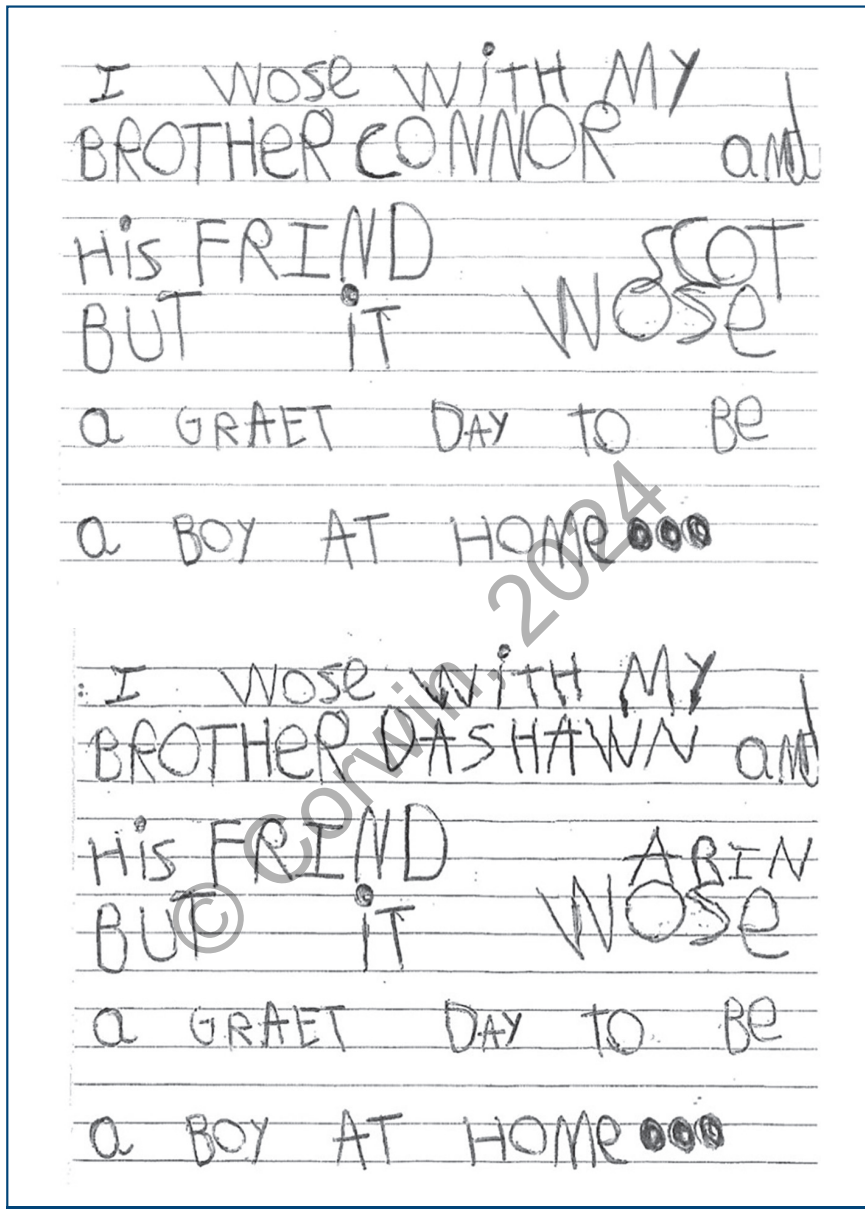 I WOSe WiTH MY
BROTHeR CONNOR and
His FRIND SCOT
BUT iT WOSe
a GRAET DAY TO Be
a BOY AT HOMe...
I WOSe WiTH MY
BROTHeR DASHAWN and
His FRIND ARIN
BUT iT WOSe
a GRAET DAY TO Be
a BOY AT HOMe...
© Corwin, 2024